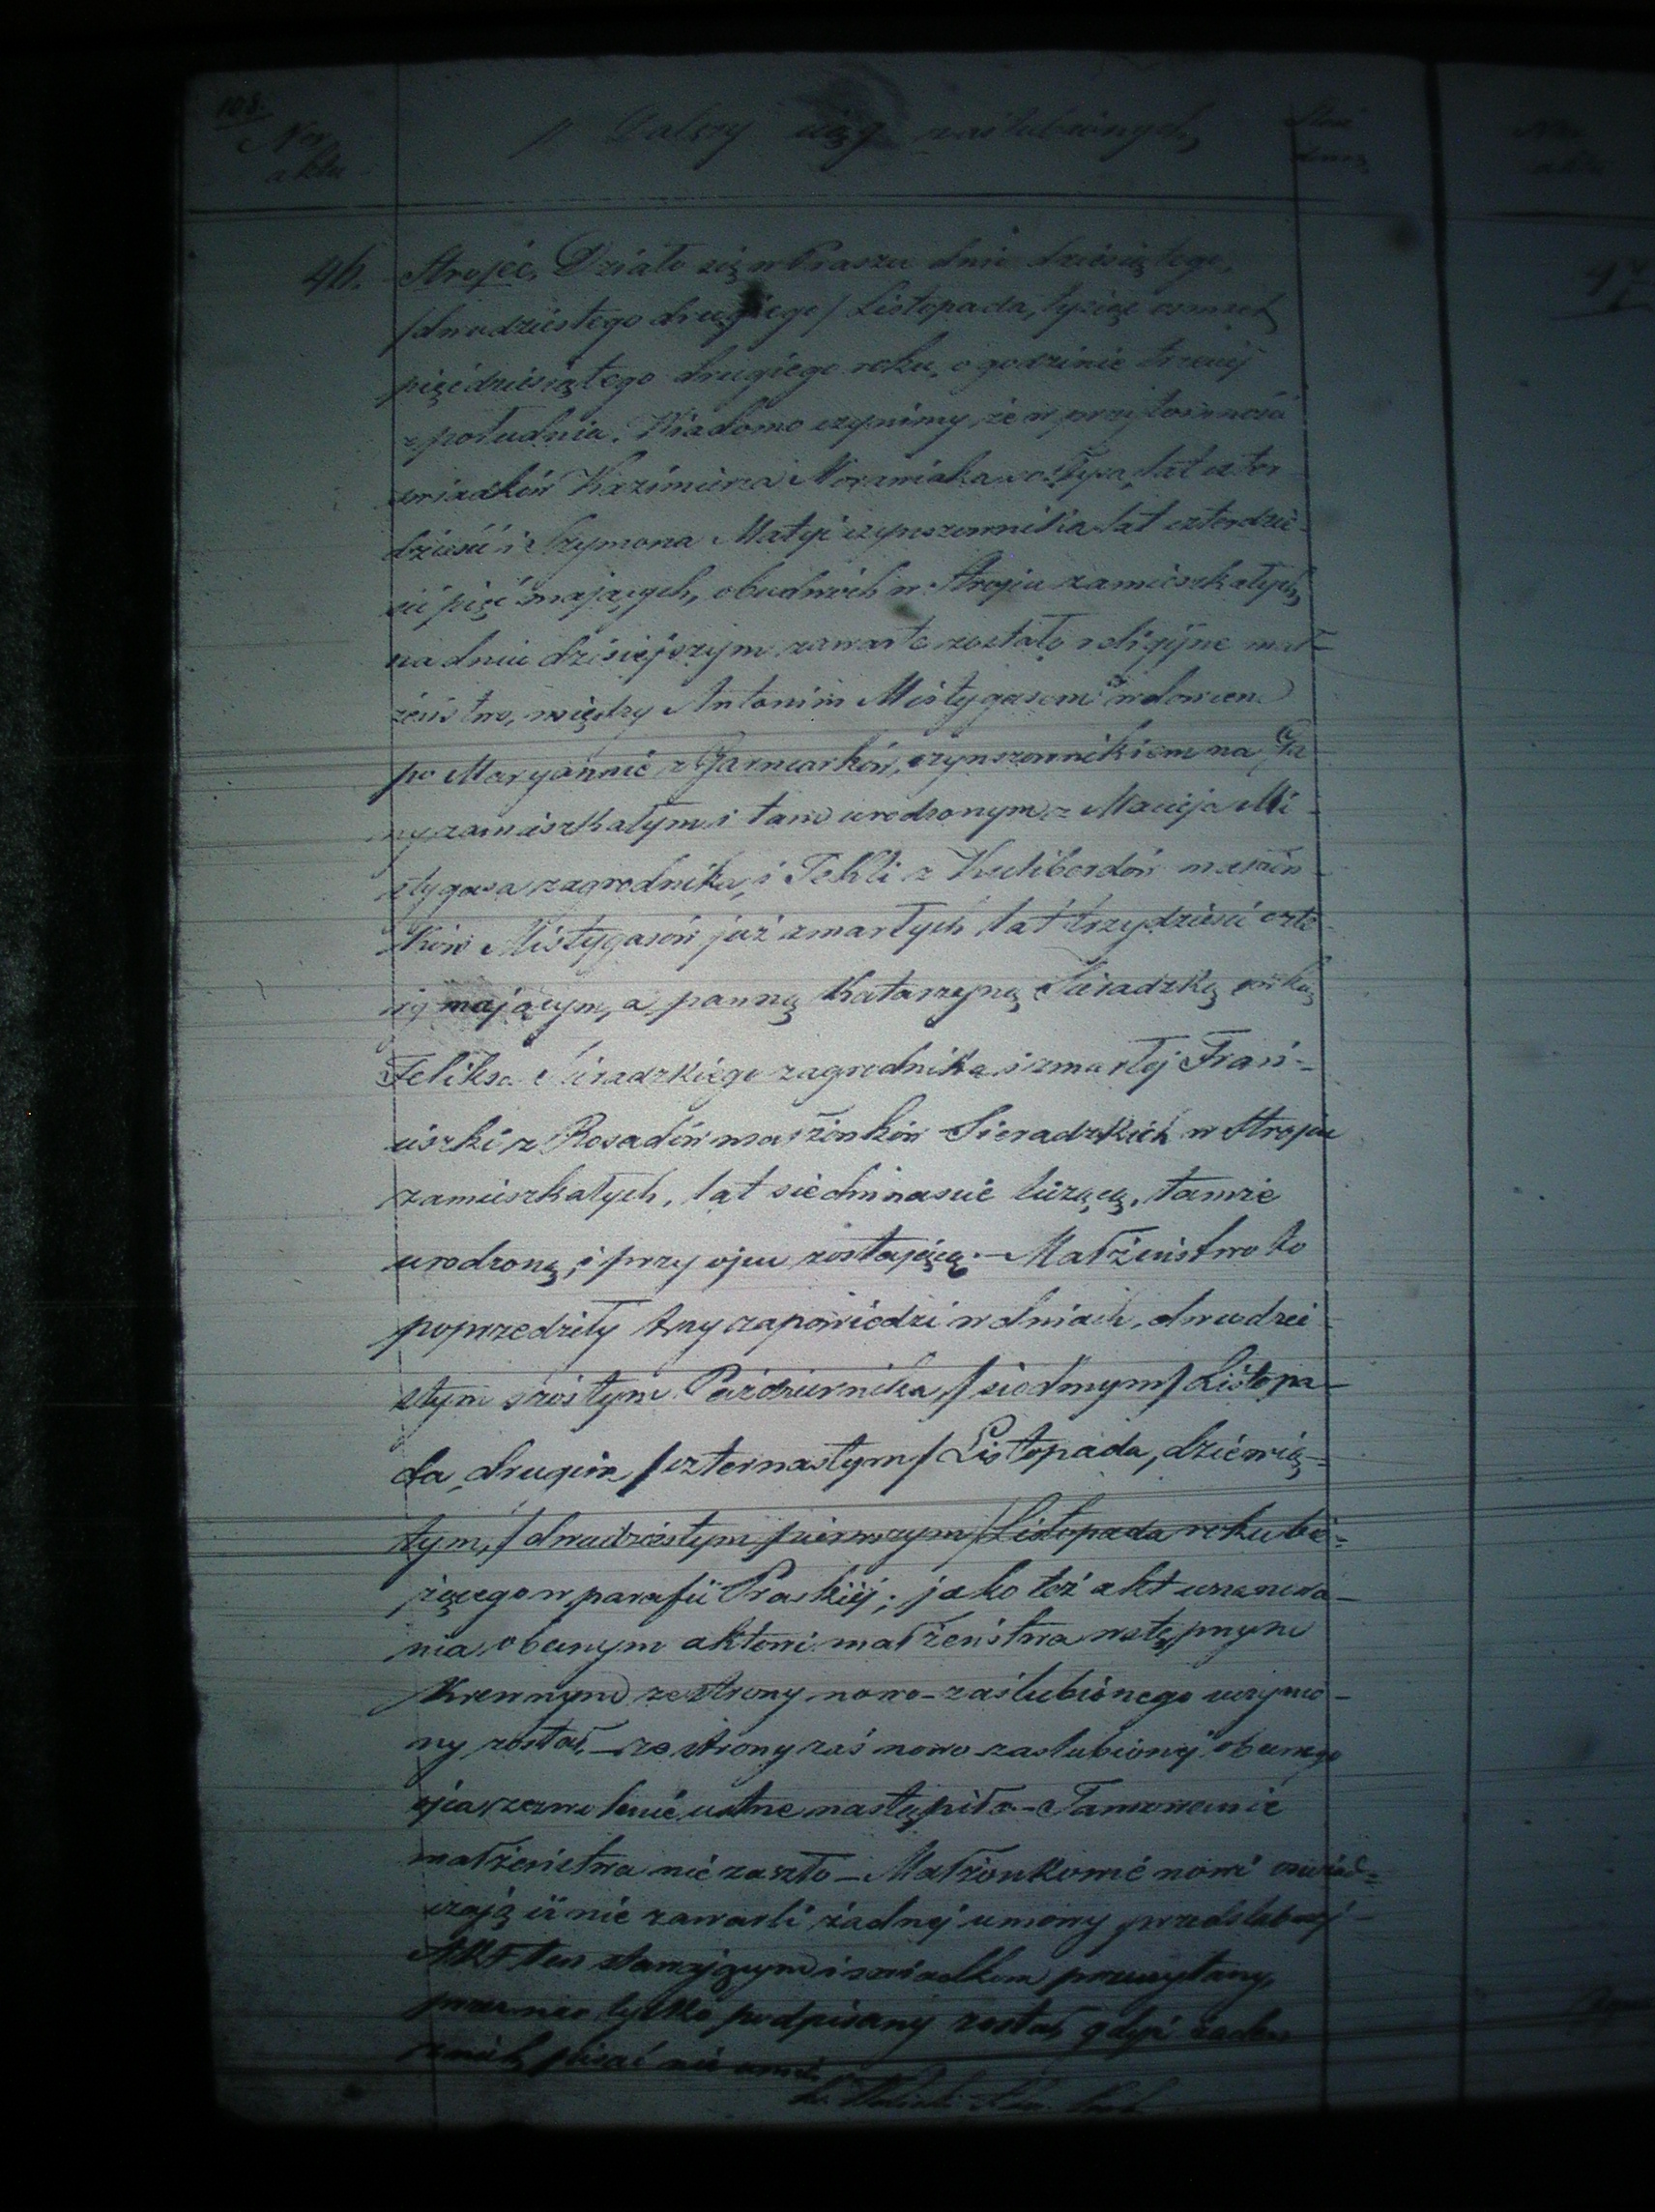 108.
Nro
aktu
Dalszy ciąg zaślubionych
46.
Strojec. Działo się w Praszce dnia dziesiątego
/dwudziestego drugiego/ Listopada, tysiąc ośmset
pięćdziesiątego drugiego roku, o godzinie trzeciej
z południa. Wiadomo czynimy, że w przytomności
świadków Kazimierza Morawiaka sołtysa, lat czter-
dzieści i Szymona Matyi czynszownika lat czterdzie-
ści pięć mających, obudwóch w Strojcu zamieszkałych,
na dniu dzisiejszym zawarte zostało religijne mał-
żeństwo, między Antonim Mistygasem wdowcem
po Maryannie z Garncarków, czynszownikiem na
zamieszkałym i tam urodzonym z Macieja Mi-
stygasa zagrodnika, i Tekli z Kulibordów małżon-
ków Mistygasów już zmarłych lat trzydzieści czte-
ry mającym, a panną Katarzyną Sieradzką córką
Feliksa Sieradzkiego zagrodnika i zmarłej Fran-
ciszki z Rosadów małżonków Sieradzkich w Strojcu
zamieszkałych, lat siedmnaście liczącą, tamże
urodzoną, i przy ojcu zostającą. – Małżeństwo to
poprzedziły trzy zapowiedzi w dniach, dwudzie-
stym szóstym Października, /siódmym/ Listopa-
da, drugim /czternastym/ Listopada, dziewią-
tym, /dwudziestym pierwszym/ Listopada roku bie-
żącego w parafii Praskiej; jako też akt uszanowa-
nia obecnym aktowi małżeństwa wstępnym
krewnym ze strony nowo-zaślubionego uczynio-
ny został, – ze strony zaś nowo zaślubionej obecnego
ojca zezwolenie ustne nastąpiło. – Tamowanie
małżeństwa nie zaszło – Małżonkowie nowi oświad-
czają iż nie zawarli żadnej umowy przedślubnej –
Akt ten stawającym i świadkom przeczytany,
przez nas tylko podpisany został, gdyż żaden
z nich pisać nie umie.